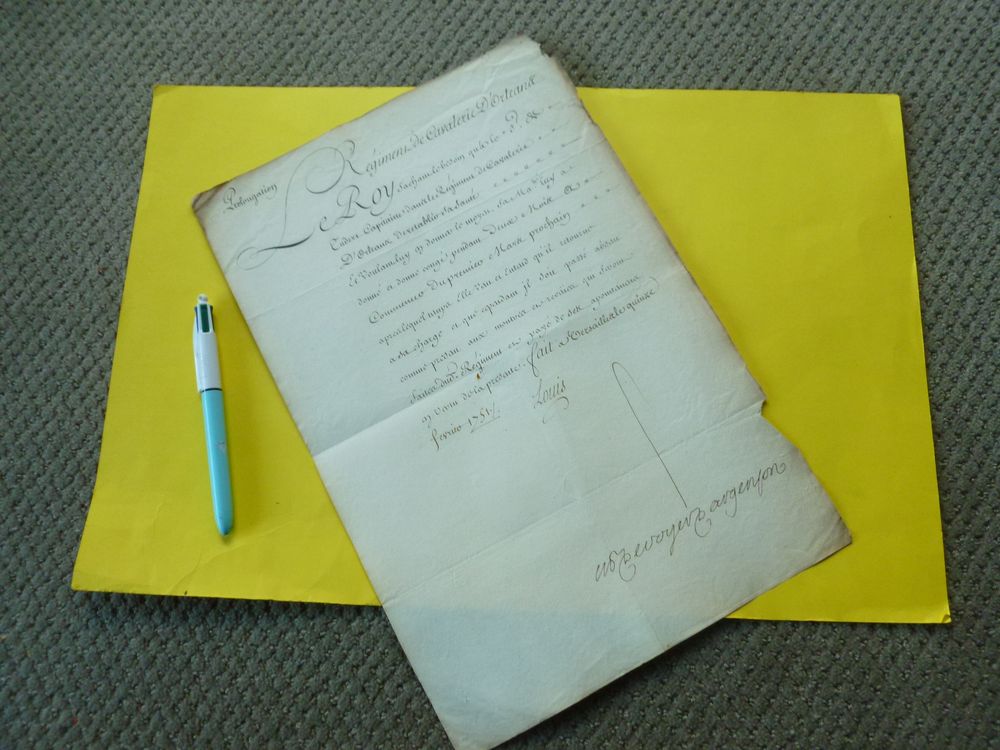 Régiment de Cavalerie D'Orleans
Prolongation
Le Roy Sachant le besoin qu'a le S. de
Capitaine dans le Régiment de Cavalerie
D'Orleans de retablir sa santé
Et Voulant luy donner le moyen Sa Ma.té luy a
donné et donne congé pendant Deux Mois a
Commencer Du premier Mars prochain
apres lequel temps Elle veut et entend qu'il retourne
a sa charge et que cependant il soit passé absent
comme présent aux montres et reveües qui seront
faites dud. Régiment et payé de ses apointemens
en vertu de la presente. fait a Versailles le quinze
fevrier 1751.
Louis
M de Voyer d'argenson